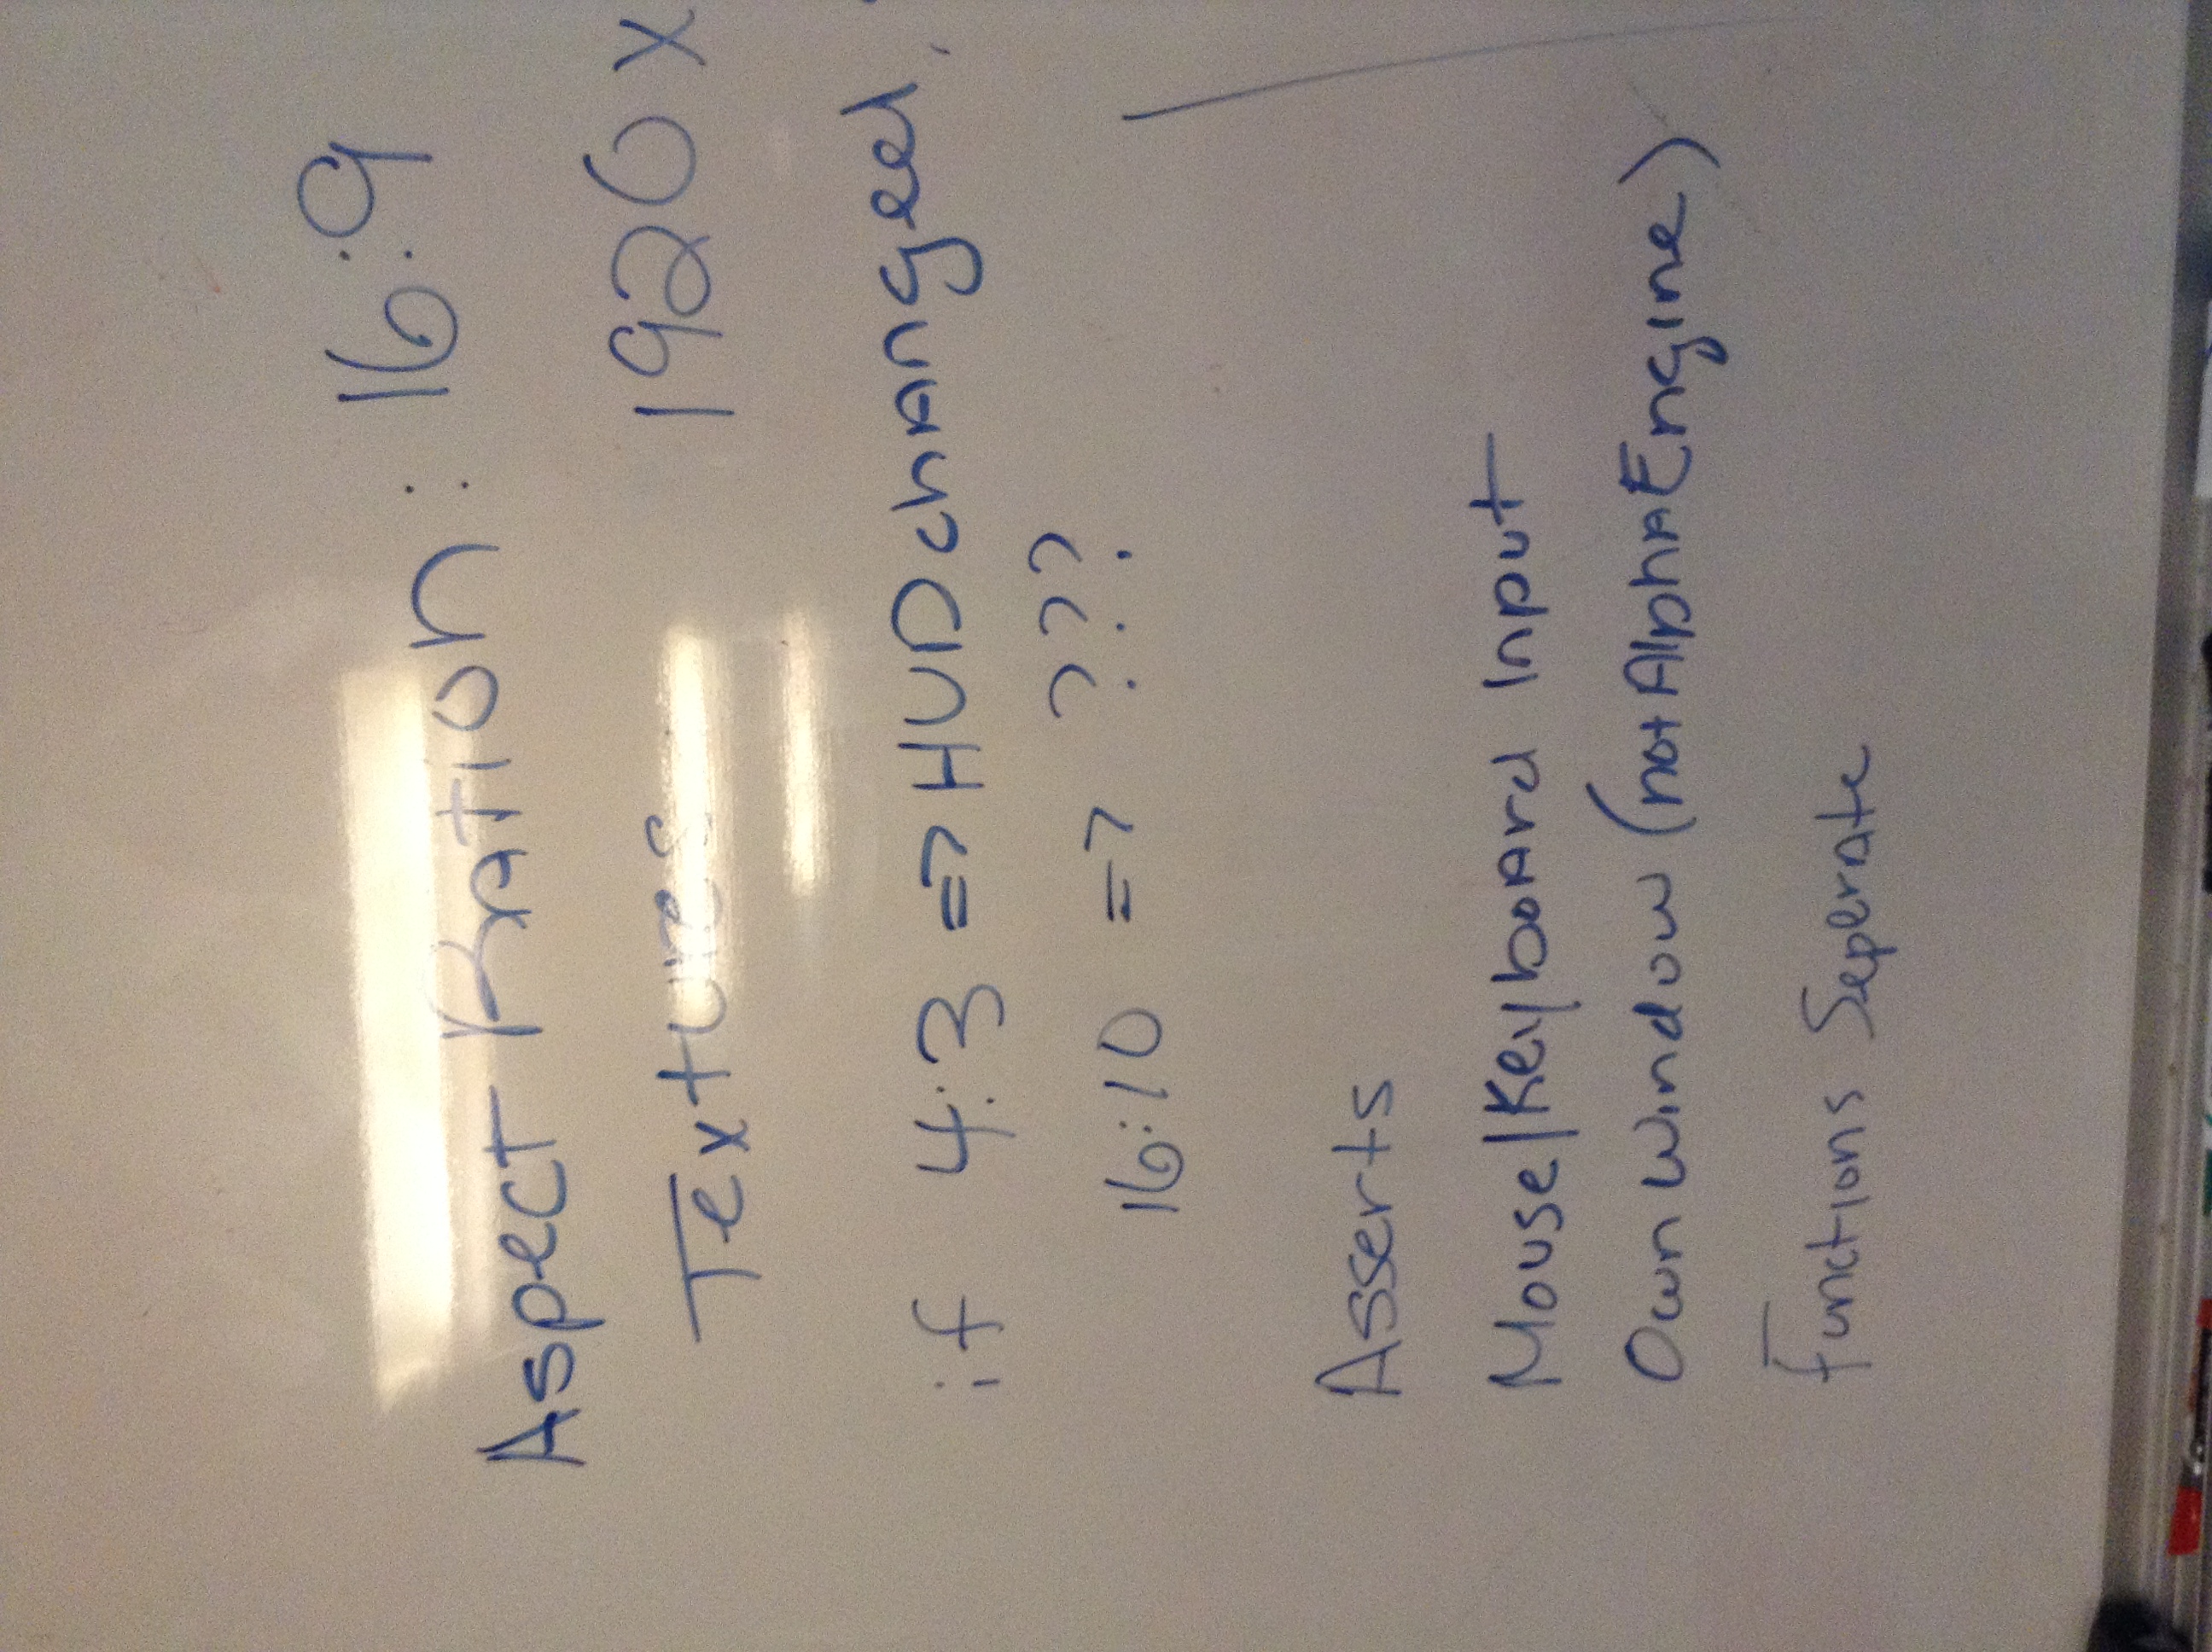 Aspect Ration: 16:9
Textures 1920 x
if 4:3 => HUD changed,
16:10 => ???
Asserts
Mouse/Keyboard Input
Own Window (not AlphaEngine)
Functions Seperate